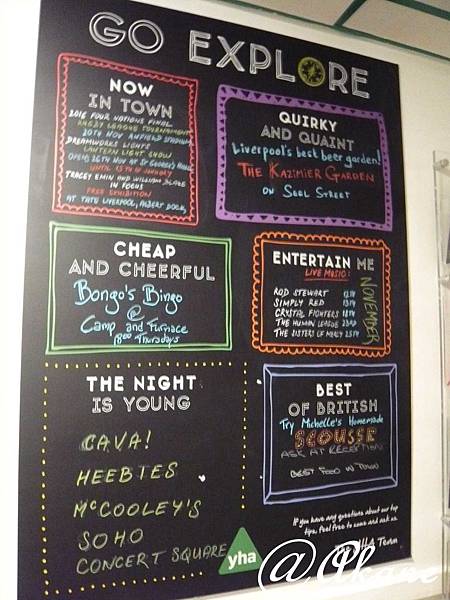 GO EXPLORE
NOW
IN TOWN
2016 FOUR NATIONS FINAL
RUGBY LEAGUE TOURNAMENT
20TH NOV ANFIELD STADIUM
DREAMWORKS LIGHTS
LANTERN LIGHT SHOW
OPENS 26TH NOV AT ST GEORGES HALL
UNTIL 15TH OF JANUARY
TRACEY EMIN AND WILLIAM BLAKE
IN FOCUS
FREE EXHIBITION
AT TATE LIVERPOOL, ALBERT DOCK,
QUIRKY
AND QUAINT
Liverpool's best beer garden!
THE KAZIMIER GARDEN
ON SEEL STREET
CHEAP
AND CHEERFUL
Bongo's Bingo
@
Camp and Furnace
Thursdays
ENTERTAIN ME
LIVE MUSIC:
NOVEMBER
ROD STEWART
SIMPLY RED
CRYSTAL FIGHTERS 18TH
THE HUMAN LEAGUE 23RD
THE SISTERS OF MERCY 25TH
THE NIGHT
IS YOUNG
CAVA!
HEEBIES
McCOOLEY'S
SOHO
CONCERT SQUARE
BEST
OF BRITISH
Try Michelle's Homemade
SCOUSSE
ASK AT RECEPTION
BEST FOOD IN TOWN
If you have any questions about our top
tips, feel free to come and ask us.
The YHA Team
yha
@.Okane